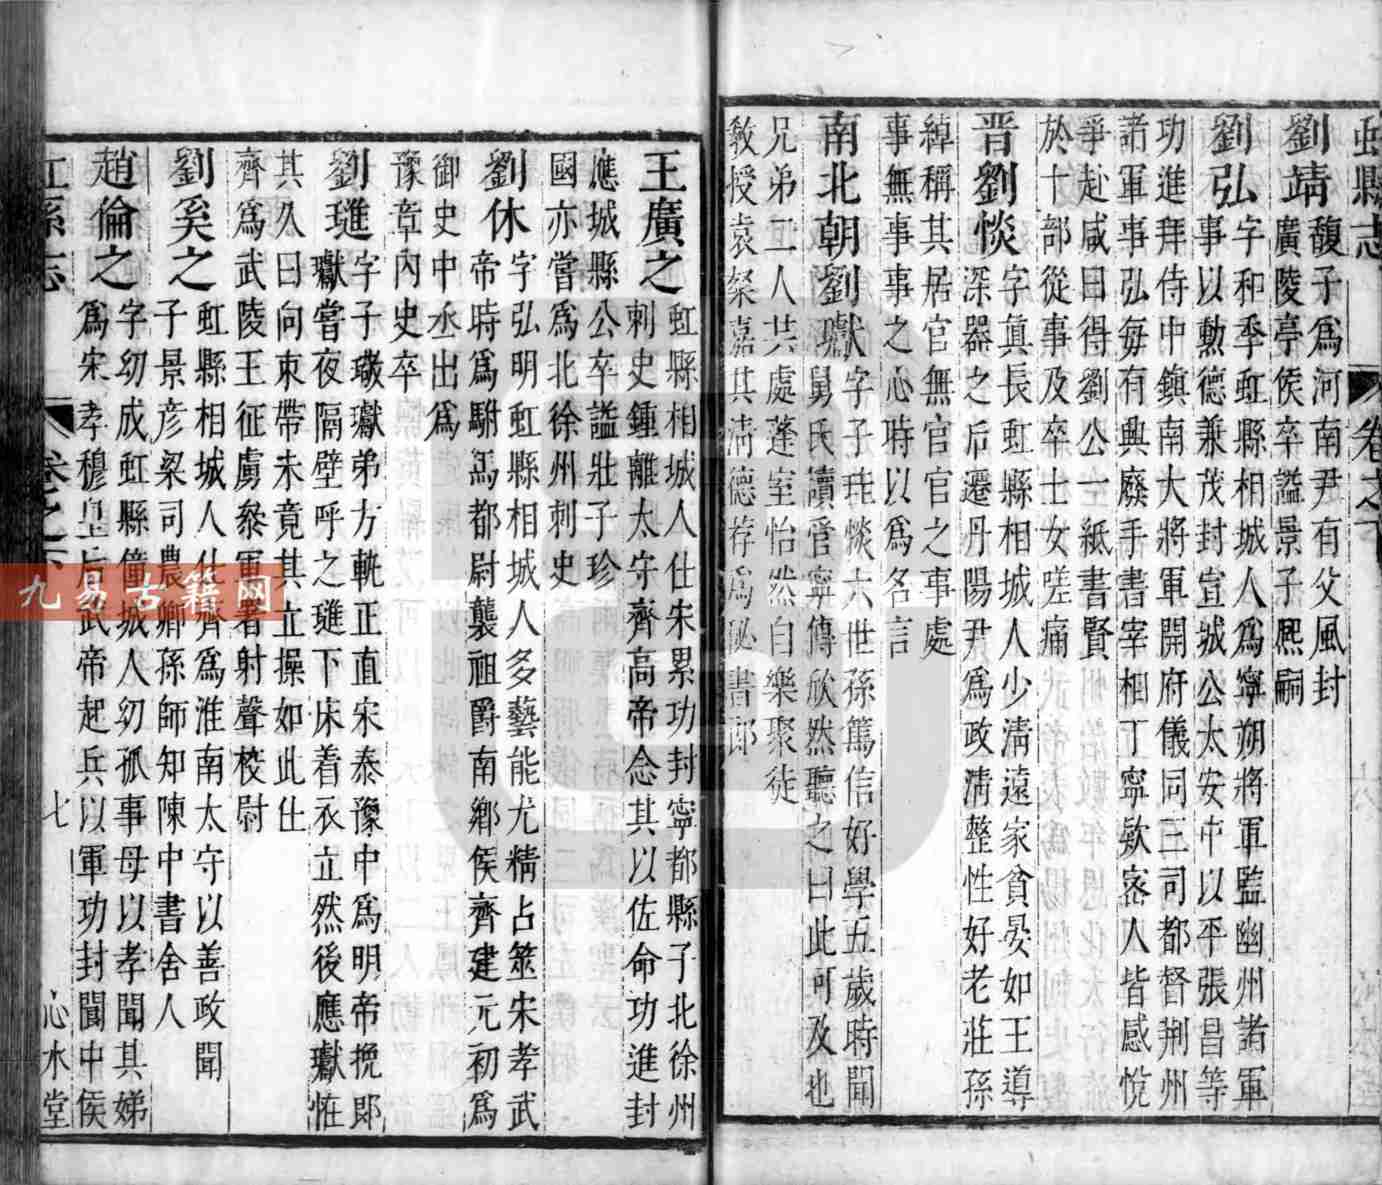 虹縣志
卷之下
劉靖馥子為河南尹有父風封
廣陵亭侯卒謚景子熈嗣
劉弘字和季虹縣相城人為寧朔將軍監幽州諸軍
事以勲德兼茂封宣城公太安中以平張昌等
功進拜侍中鎮南大將軍開府儀同三司都督荆州
諸軍事弘每有興廢手書宰相丁寧欵宻人皆感悅
爭赴咸曰得劉公一紙書賢
於十部從事及卒士女嗟痛
晋劉惔字眞長虹縣相城人少淸遠家貧晏如王導
深器之后遷丹陽尹為政淸整性好老莊孫
綽稱其居官無官官之事處
事無事事之心時以爲名言
南北朝劉瓛字子珪惔六世孫篤信好學五歲時聞
舅氏讀管寧傳欣然聽之曰此可及也
兄弟二人共處蓬室怡然自樂聚徒
敎授袁粲嘉其淸德荐爲祕書郎
王廣之虹縣相城人仕宋累功封寧都縣子北徐州
刺史鍾離太守齊高帝念其以佐命功進封
應城縣公卒謚壯子珍
國亦嘗爲北徐州刺史
劉休字弘明虹縣相城人多藝能尤精占筮宋孝武
帝時爲駙馬都尉襲祖爵南鄉侯齊建元初爲
御史中丞出爲
豫章內史卒
劉璡字子璥瓛弟方軌正直宋泰豫中爲明帝挽郎
瓛嘗夜隔壁呼之璡下床着衣立然後應瓛恠
其久曰向束帶未竟其立操如此仕
齊爲武陵王征虜叅軍署射聲校尉
劉奚之虹縣相城人仕齊爲淮南太守以善政聞
子景彦梁司農卿孫師知陳中書舍人
趙倫之字幼成虹縣僮城人幼孤事母以孝聞其娣
爲宋孝穆皇后武帝起兵以軍功封閬中侯
虹縣志
卷之下
七
心水堂
九易古籍网